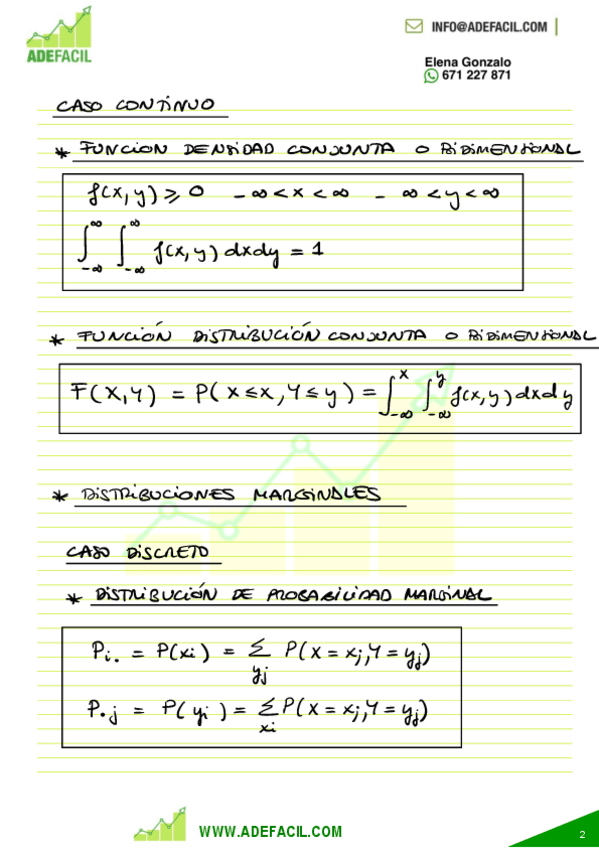 INFO@ADEFACIL.COM
ADEFACIL
Elena Gonzalo
671 227 871
CASO CONTINUO
* FUNCION DENSIDAD CONJUNTA O BIDIMENSIONAL
f(x,y) ≥ 0 -∞<x<∞ -∞<y<∞
∫_{-∞}^{∞} ∫_{-∞}^{∞} f(x,y) dxdy = 1
* FUNCIÓN DISTRIBUCIÓN CONJUNTA O BIDIMENSIONAL
F(X,Y) = P(X≤x, Y≤y) = ∫_{-∞}^{x} ∫_{-∞}^{y} f(x,y) dxdy
* DISTRIBUCIONES MARGINALES
CASO DISCRETO
* DISTRIBUCIÓN DE PROBABILIDAD MARGINAL
Pi. = P(xi) = Σ_{yj} P(X=xj, Y=yj)
P.j = P(yi) = Σ_{xi} P(X=xj, Y=yj)
WWW.ADEFACIL.COM
2